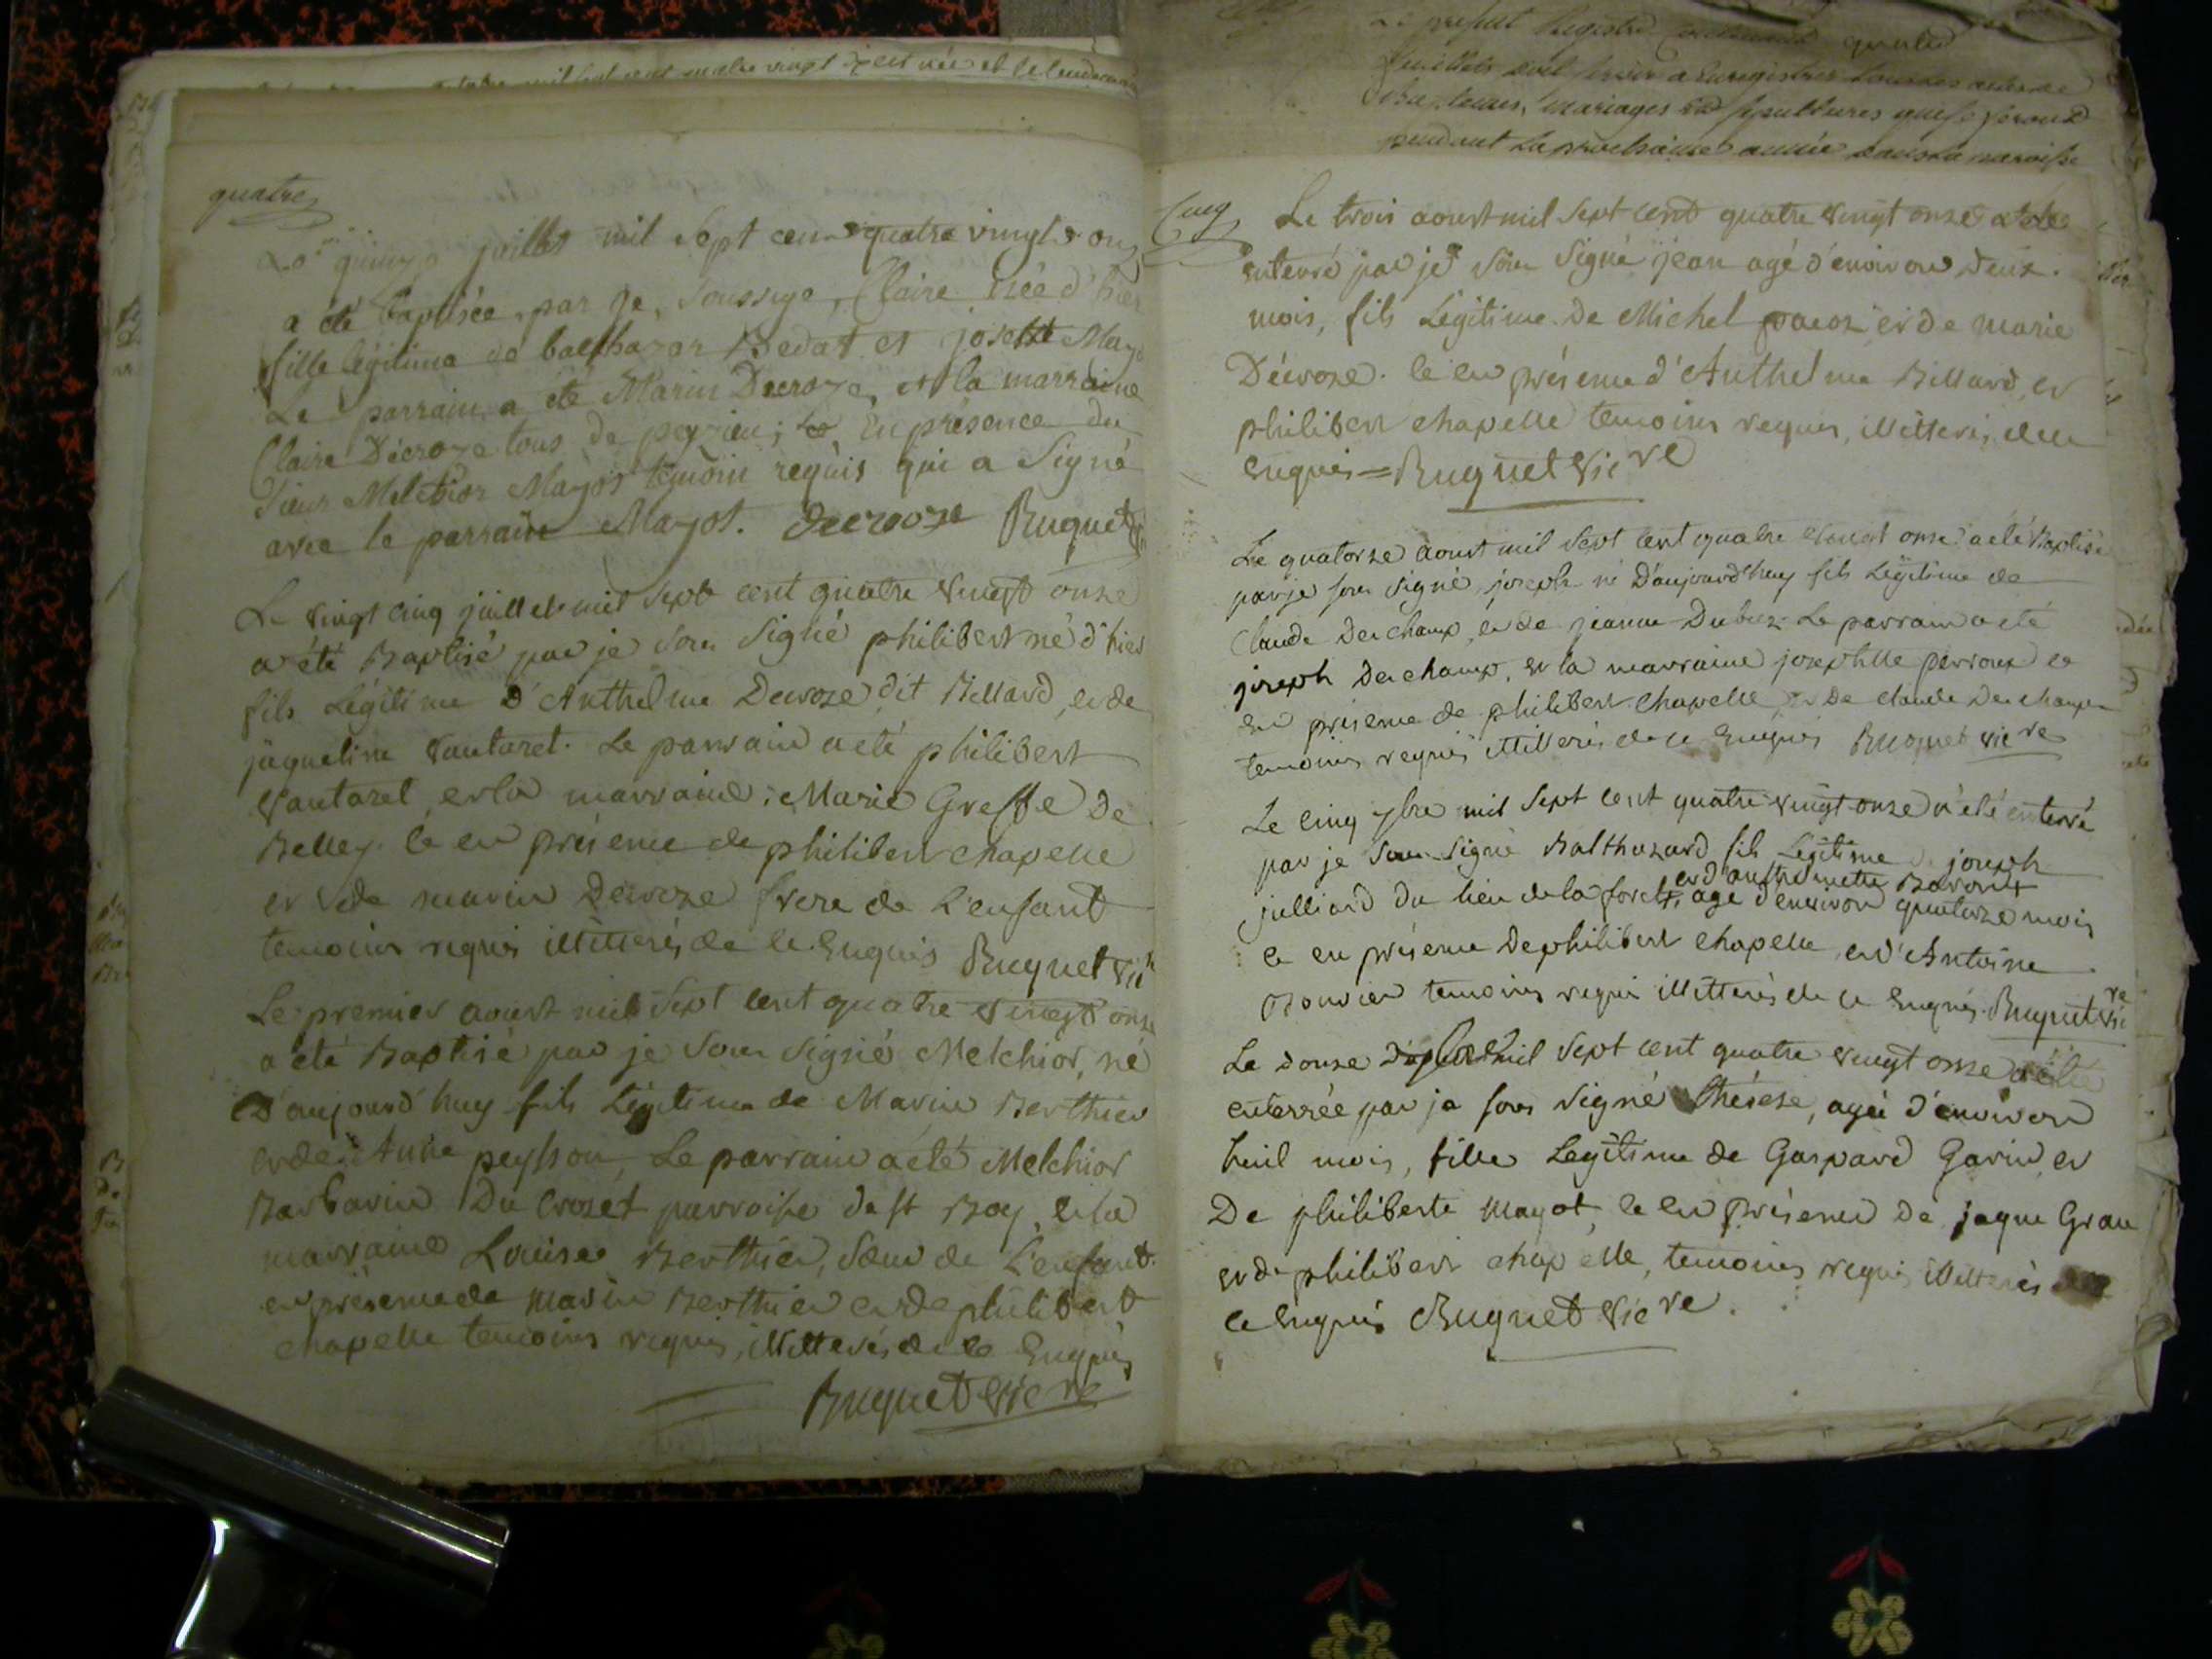 quatre
Le quinze juillet mil Sept cent quatre vingt onz
a été baptisée par je, Soussigé, Claire née d'hier
fille légitime de balthazar Bedat et josette May
Le parrain a été Marin Decroze, et la marraine
Claire Décroze tous de peyrieu; En présence du
Sieur Melchior Mayot témoin requis qui a Signé
avec le parrain Mayot. decroze Buquet
Le vingt cinq juillet mil Sept cent quatre vingt onze
a été Baptisé par je Sous Signé philibert né d'hier
fils Légitime D'Anthelme Decroze dit Billard, et de
jaqueline vantaret. Le parrain a eté philibert
Vantaret, et la marraine, Marie Greffe De
Belley. ce en présence de philibert chapelle
et de marin Decroze frere de L'enfant
temoins requis illitterés de ce Enquis Buquet vic
Le premier aoust mil Sept cent quatre vingt onze
a été Baptisé par je Sous Signé Melchior, né
D'aujourd'huy fils Légitime de Marin Berthier
et de Anne peysson, Le parrain a été Melchior
Barbarin Du Crozet parroisse de st Boy, et la
marraine Louise Berthier, Sœur de L'enfant.
en présence de Marin Berthier et de philibert
chapelle temoins requis, illitterés de ce Enquis
Buquet vic re
Le présent Registre contenant quatre
feuillets doit servir a Enregistrer tous les actes de
Baptemes, mariages et sepultures qui se feront
pendant La prochaine année dans la paroisse
Cinq
Le trois aoust mil Sept cent quatre vingt onze a été
enterré par je Sous Signé jean agé d'environ deux
mois, fils Légitime De Michel et de marie
Décroze. ce en présence d'Anthelme Billard, et
philibert chapelle temoins requis, illitterés, de ce
enquis = Buquet vic re
Le quatorze aoust mil Sept cent quatre vingt onze a été Baptisé
par je sous Signé joseph né D'aujourd'huy fils Légitime de
Claude Deschamp, et de jeanne Dubuz. Le parrain a eté
joseph Deschamp, et la marraine josephtte perroux ce
en présence de philibert chapelle, et De claude Deschamps
temoins requis illitterés de ce Enquis Buquet vic re
Le cinq 7bre mil Sept cent quatre vingt onze a été enterré
par je Sous Signé Balthazard fils Légitime de joseph
et d'anthelmette
julliard du lieu de la forest, agé d'environ quatorze mois
ce en présence De philibert chapelle, et d'Antoine
Bouvier temoins requis illitterés de ce Enquis Buquet vic re
Le douze mil Sept cent quatre vingt onze a été
enterrée par je sous Signé thérese, agée d'environ
huit mois, fille Legitime de Gaspard Gavin, et
De philiberte Mayot, ce en présence de jaque Grau
et de philibert chapelle, temoins requis illitterés de
ce Enquis Buquet vic re.